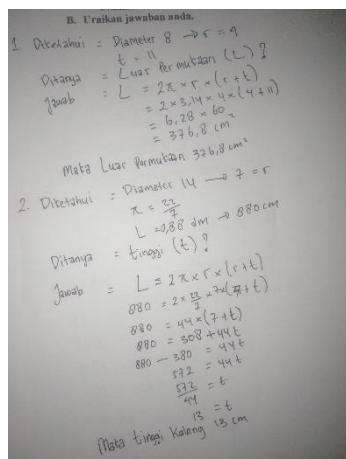 B. Uraikan jawaban anda.
1 Diketahui = Diameter 8 → r = 4
t = 11
Ditanya = Luas Permukaan (L) ?
Jawab = L = 2π × r × (r + t)
= 2 × 3,14 × 4 × (4 + 11)
= 6,28 × 60
= 376,8 cm²
Maka Luas Permukaan 376,8 cm²
2. Diketahui = Diameter 14 → 7 = r
π = 22/7
L = 0,88 dm → 880 cm
Ditanya = tinggi (t) ?
Jawab = L = 2π × r × (r + t)
880 = 2 × 22/7 × 7 × (7 + t)
880 = 44 × (7 + t)
880 = 308 + 44t
880 − 380 = 44t
572 = 44t
572/44 = t
13 = t
Maka tinggi kaleng 13 cm